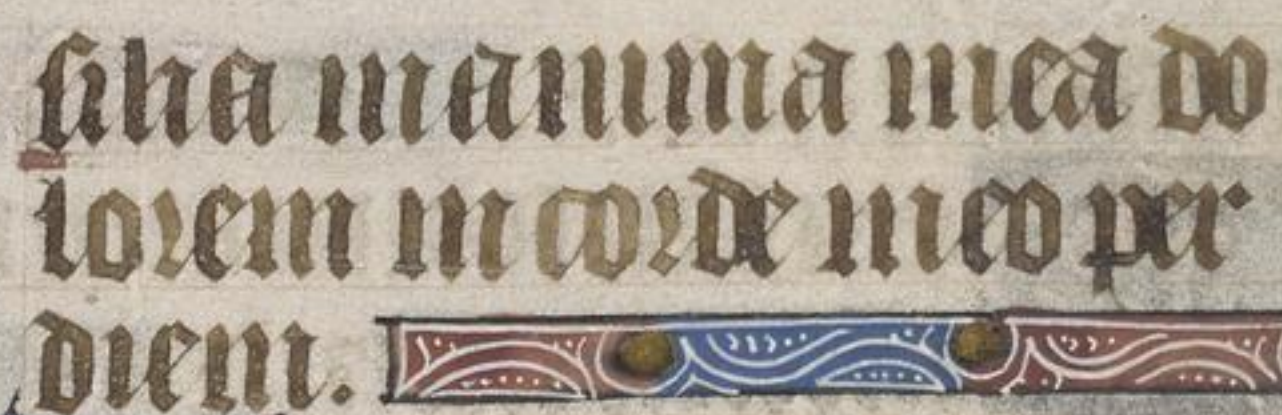 silia in anima mea do
lorem in corde meo per
diem.